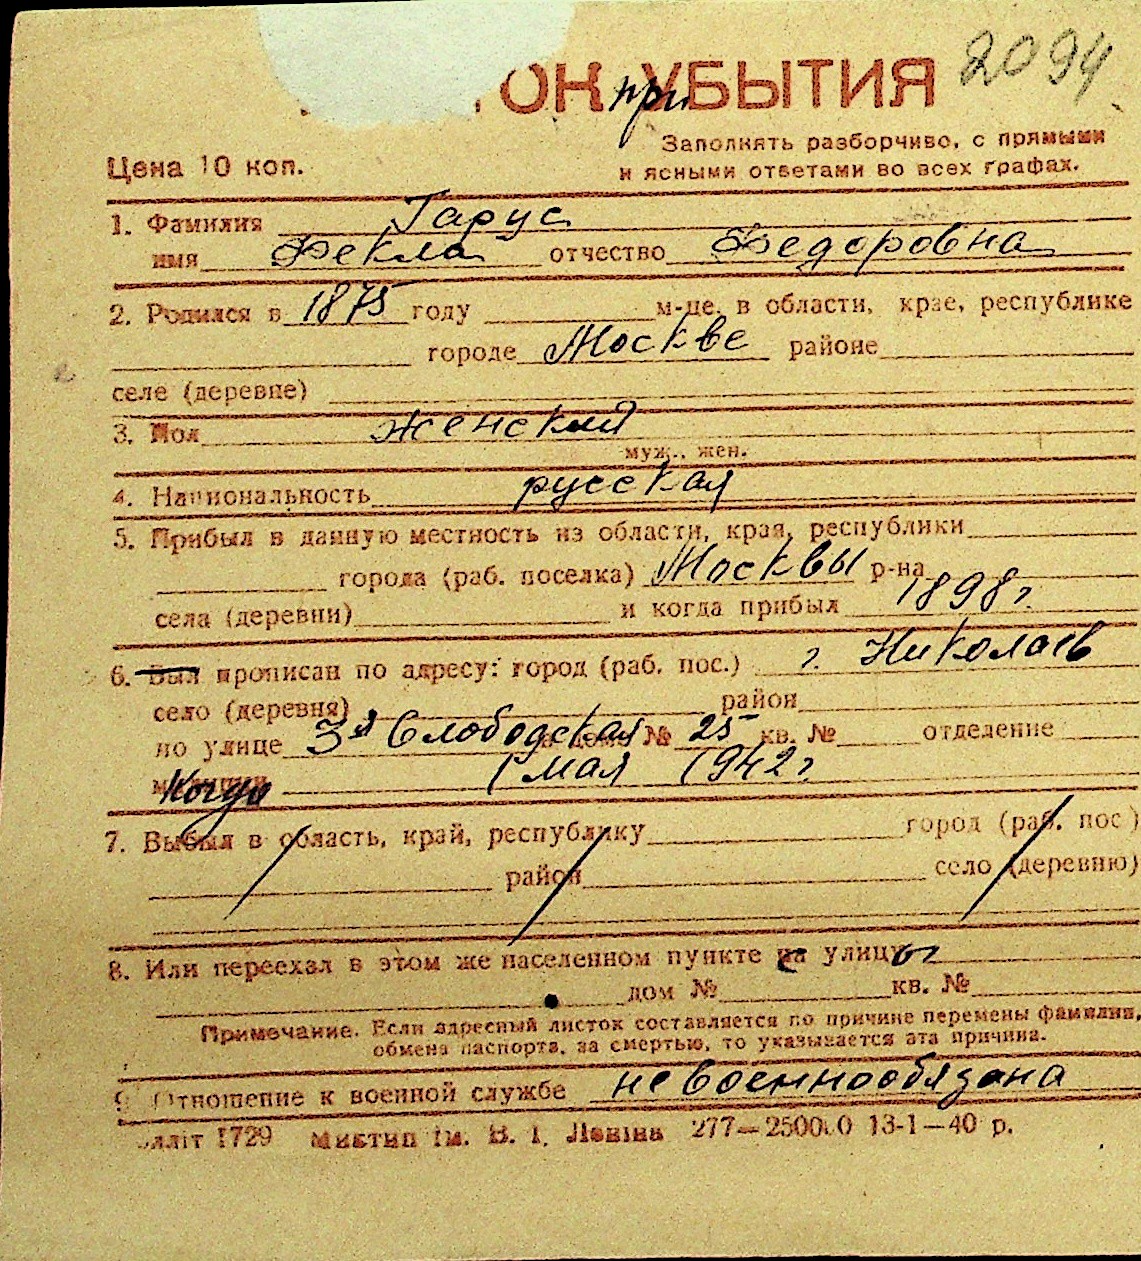 2094
ОК при УБЫТИЯ
Заполнять разборчиво, с прямыми
Цена 10 коп.
и ясными ответами во всех графах.
1. Фамилия Гарус
имя Фекла отчество Федоровна
2. Родился в 1875 году м-це, в области, крае, республике
городе Москве районе
селе (деревне)
3. Пол женский
муж., жен.
4. Национальность русская
5. Прибыл в данную местность из области, края, республики
города (раб. поселка) Москвы р-на
села (деревни) и когда прибыл 1898 г.
6. Был прописан по адресу: город (раб. пос.) г. Николаев
село (деревня) район
по улице 3я Слободская дом № 25 кв. № отделение
милиции Когда 1 мая 1942 г
7. Выбыл в область, край, республику город (раб. пос.)
район село (деревню)
8. Или переехал в этом же населенном пункте с улицы
дом № кв. №
Примечание. Если адресный листок составляется по причине перемены фамилии,
обмена паспорта, за смертью, то указывается эта причина.
9 Отношение к военной службе невоеннообязана
1729 Миктип ім. В. І. Леніна 277—250000 13-1—40 р.